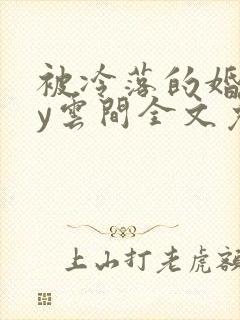 被冷落的婚
y雲間全文
上山打老虎額